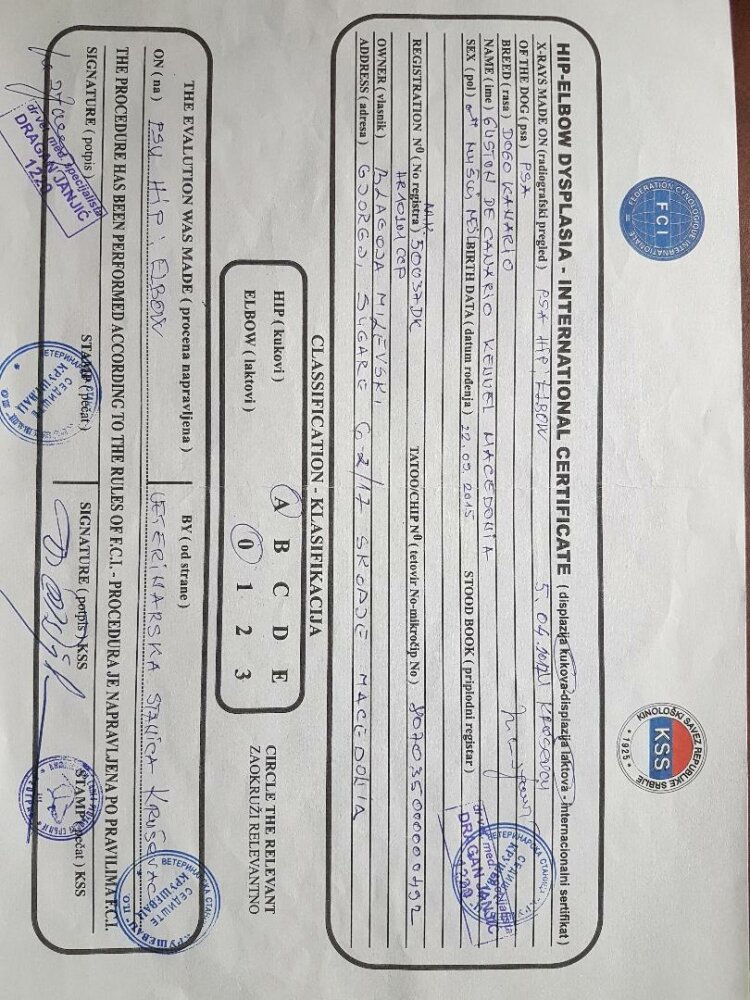 FEDERATION CYNOLOGIQUE INTERNATIONALE
FCI
KINOLOŠKI SAVEZ REPUBLIKE SRBIJE
KSS
* 1925 *
HIP-ELBOW DYSPLASIA - INTERNATIONAL CERTIFICATE ( displazija kukova-displazija laktova - internacionalni sertifikat )
X-RAYS MADE ON (radiografski pregled ) PSA HIP, ELBOW 5.04. KRUŠEVAC
OF THE DOG ( psa ) PSA
BREED ( rasa ) DOGO KANARIO
NAME ( ime ) GUSTON DE CANARIO KENNEL MACEDONIA
SEX ( pol ) MUŠKI BIRTH DATA ( datum rođenja ) 22.09.2015 STOOD BOOK ( priplodni registar )
REGISTRATION Nº ( No registra ) 50037DK TATOO/CHIP Nº ( tetovir No-mikročip No )
OWNER ( vlasnik ) BLAGOJA MILEVSKI
ADDRESS ( adresa ) GJORGJ, SUGARE 6-2/17 SKOPJE MACEDONIA
ВЕТЕРИНАРСКА СТАНИЦА
СЕДИШТЕ
КРУШЕВАЦ
dr vet. med. specijalista
DRAGAN JANJIĆ
1220
CLASSIFICATION - KLASIFIKACIJA
HIP ( kukovi ) A B C D E
ELBOW ( laktovi ) 0 1 2 3
CIRCLE THE RELEVANT
ZAOKRUŽI RELEVANTNO
THE EVALUTION WAS MADE ( procena napravljena ) BY ( od strane )
ON ( na ) PSU HIP i ELBOW VETERINARSKA STANICA KRUŠEVAC
THE PROCEDURE HAS BEEN PERFORMED ACCORDING TO THE RULES OF F.C.I. - PROCEDURA JE NAPRAVLJENA PO PRAVILIMA F.C.I.
SIGNATURE ( potpis ) STAMP ( pečat ) SIGNATURE ( potpis ) KSS STAMP ( pečat ) KSS
dr vet. med. specijalista
DRAGAN JANJIĆ
1220
СЕДИШТЕ
КРУШЕВАЦ
ВЕТЕРИНАРСКА СТАНИЦА
СЕДИШТЕ
КРУШЕВАЦ